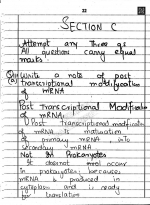 22
SECTION C
Attempt any three as
All questions carry equal
marks.
Write a note of post
(a) transcriptional modification
of mRNA
Post Transcriptional Modification
of mRNA:
Post transcriptional modification
of mRNA is maturation
of primary mRNA into
secondary mRNA
Not In Prokaryotes
It doesnot occur
in prokaryotes because
mRNA is produced in
cytoplasm and is ready
for translation